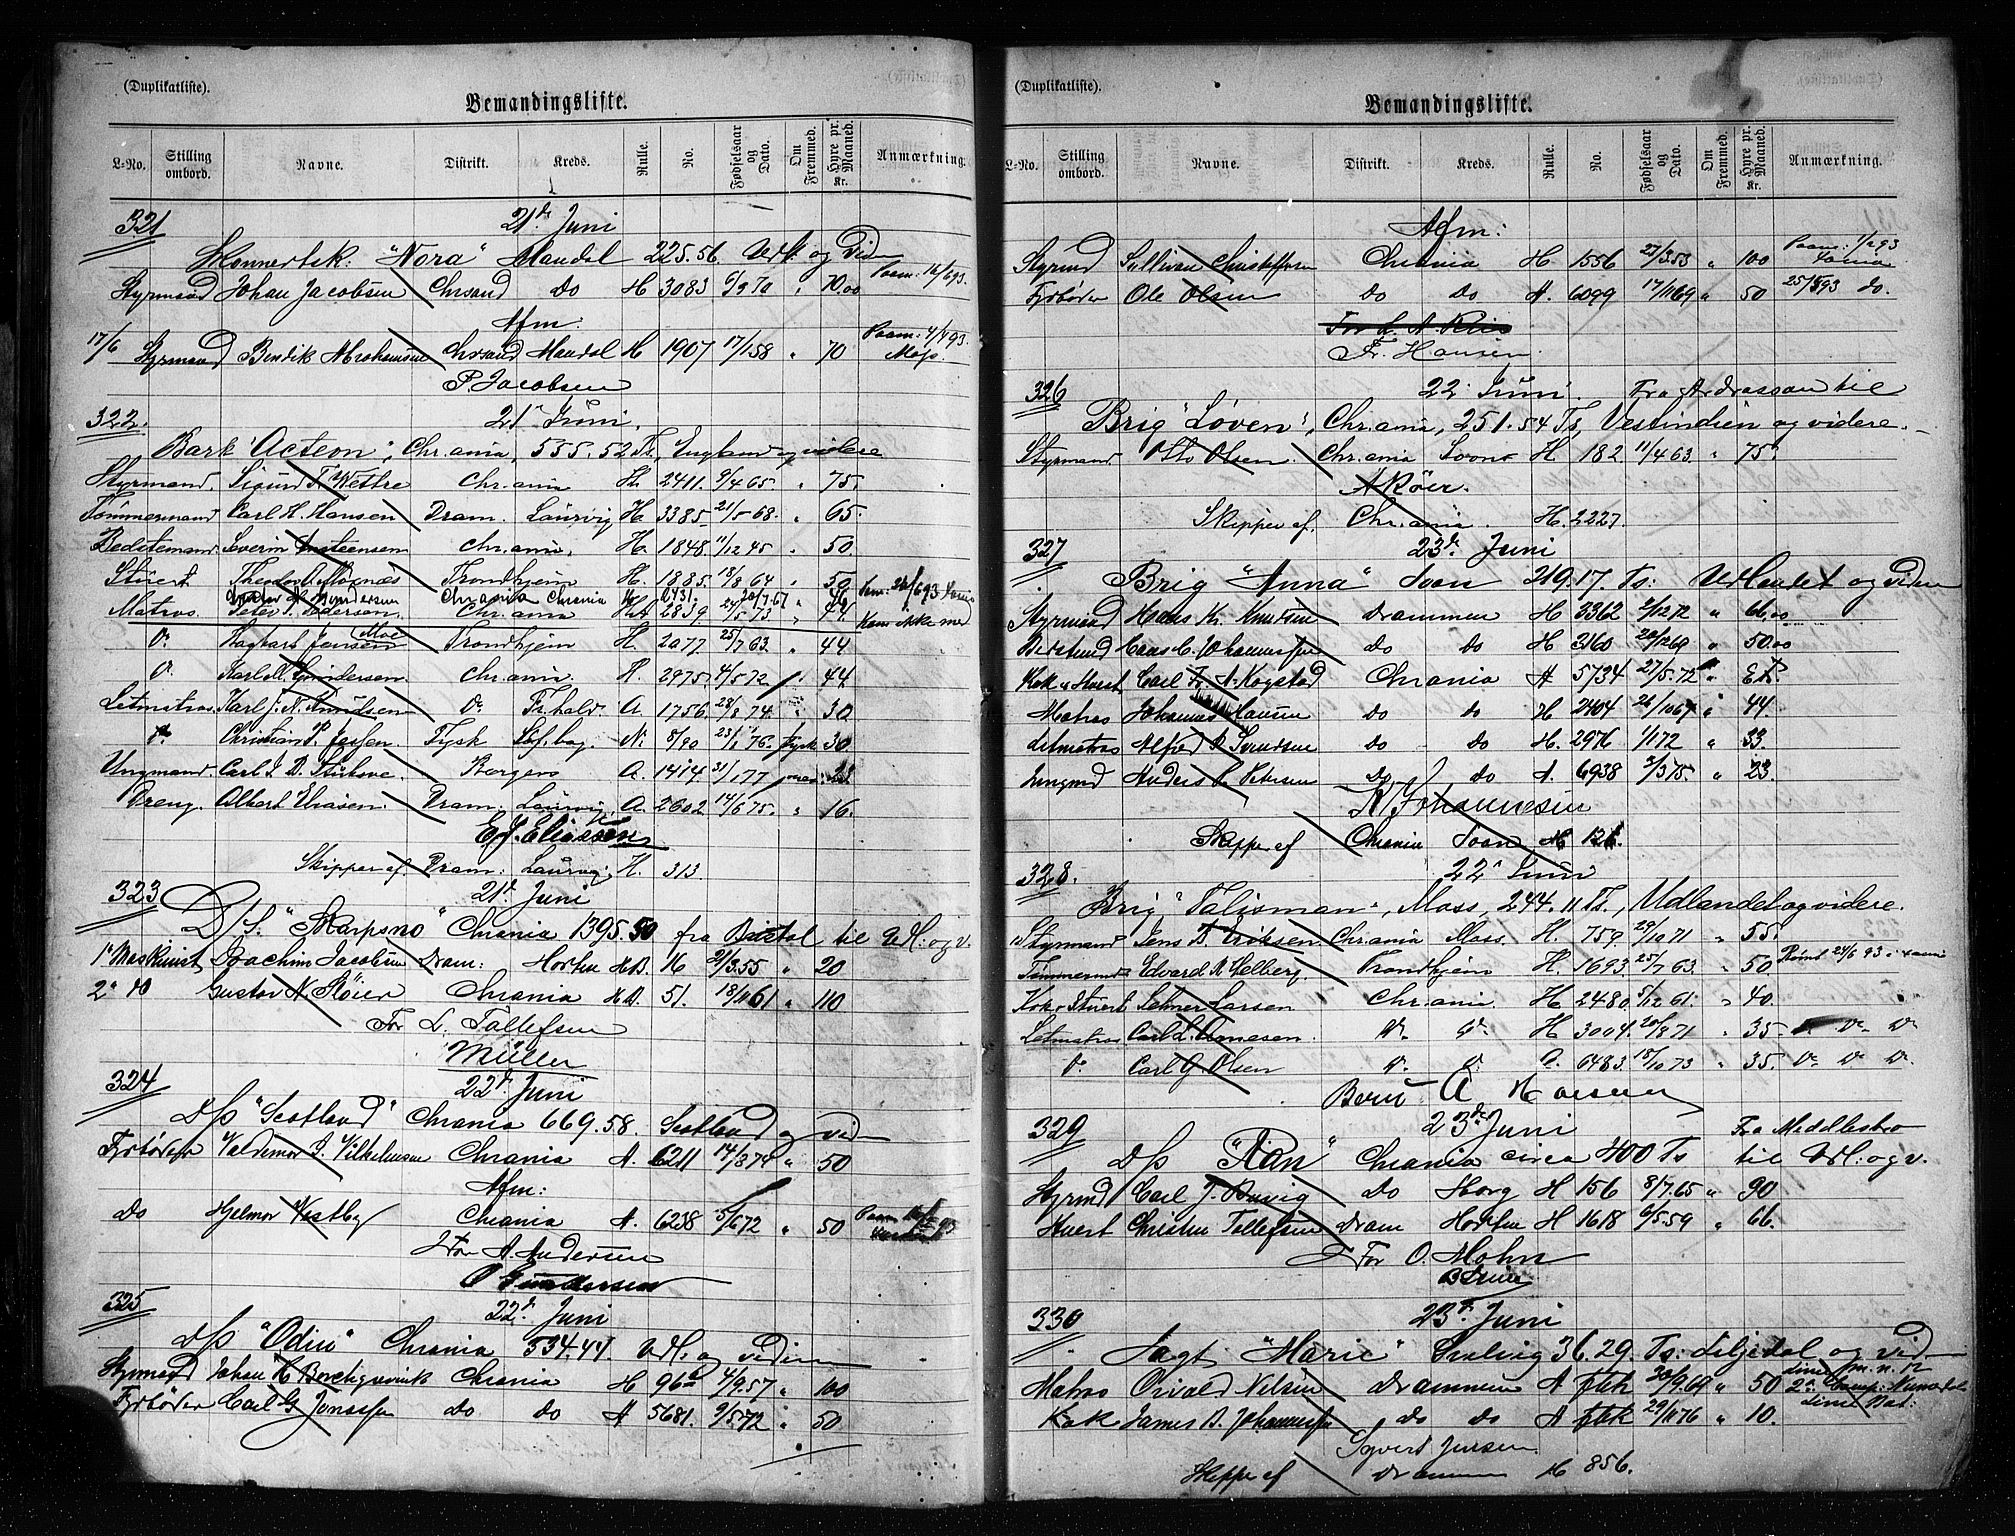 (Duplikatliste).
Bemandingsliste.
L-No. Stilling ombord. Navne. Distrikt. Kreds. Rulle. No. Fødselsaar og Dato. Om Fremmed. Hyre pr. Maaned. Kr. Anmærkning.
321 21de Juni
"Nora" Mandal 225.56 Udl. og
Styrmand Johan Jacobsen Chrsand do H 3083 6/9 70 " 70.00
Afm:
17/6 Styrmand Bendik Abrahamsen Chrsand Mandal H 1907 17/1 58 " 70
P. Jacobsen
322. 21 Juni,
Bark "Acteon", Chr.ania, 555.52 Ts, England og videre
Styrmand. Sigurd T. Wettre Chr.ania H. 2411. 9/4 65. " 75.
Tømmermand Carl H. Hansen Dram. Laurvig H. 3385. 21/5 68. " 65.
Bedstemand Severin Insteensen Chr.ania. H. 1848. 11/12 45 " 50
Stuert Trondhjem H. 1885. 18/8 64 " 50
Chrania Chrania 6431. 20/7 67
Matros. Peter P. Pedersen Chr.ania 2839. 27/5 73. " 44. Kom ikke med
do. Hagbart Jensen Moe Trondhjem H. 2077 25/7 63. " 44
do Karl M. Gundersen. Chr.ania. 2975. 4/5 72 " 44
Letmatros Karl J. N. Knudsen do Fr.hald. A. 1756. 28/8 74. " 30
do. Christian P. Jessen. Tysk N: 8/90 23/1 76. Tysk 30
Ungmand. Carl J. D. Bergens A. 1414 31/1 77
Dreng. Albert Eliasen. Dram. Laurvig A. 2602 14/6 75. " 16.
E. J. Eliassen
Skipper af Dram: Laurvig. H. 313.
323 21de Juni
D/S. "Skarpsno" Chrania 1395.50 fra Bristol til Udl: og v.
1ste Maskinist Joachim Jacobsen Dram: Horten H.D. 16 21/3 55 " 20
2n do Gustav N. Røier Chrania H.D. 51. 18/11 61 " 110
For L. Tollefsen
Müller
324 22de Juni
D/S "Scotland" Chrania 669.58 Scotland og vid
Fyrbøder Valdemar J. Vilhelmsen Chrania A. 6211 14/8 74 " 50
Afm:
do Hjelmar Vestby Chrania A. 6238 5/6 72 " 50
For A. Andersen
O Gundersen
325 22de Juni
D/S "Odin" Chrania 534.41. Udl. og videre
Styrmand Johan K Borchgrevink Chrania H 96 4/9 57 " 100
Fyrbøder Carl G Jonsson do do A 5681. 9/5 72 " 50

(Duplikatliste).
Bemandingsliste.
L-No. Stilling ombord. Navne. Distrikt. Kreds. Rulle. No. Fødselsaar og Dato. Om Fremmed. Hyre pr. Maaned. Kr. Anmærkning.
Afm:
Styrmd Sullivan Christoffersen Chrania H. 1556 27/3 53 " 100
Fyrbøder Ole Olsen do do A. 6099 17/11 69 " 50 25/8 93 do.
Fr. Hansen.
326 22 Juni. Fra Ardrossan til
Brig "Løven", Chr.ania, 251.54 Ts, Vestindien og videre.
Styrmand Otto Olsen. Chr.ania Soon H 182 11/4 63. " 75.
A Röer.
Skipper af. Chr.ania. H. 2227.
327 23de Juni
Brig "Anna" Soon 219.17. Ts: Udlandet og videre
Styrmand Hans Kr. Knutsen Drammen H 3362 2/12 72 " 66.00
Bedstmd Hans C. Johannessen do do H 3160 20/12 69 " 50.00
Kok & Stuert Carl Fr. A. Kogstad Chrania A 5734 27/5 72
Matros Johannes Hansen do do H 2404 26/10 67 " 44.
Letmatros Alfred R Svendsen do do H. 2976 1/1 72 " 33.
Jungmd Anders L Petersen do do A. 6938 3/3 75 " 23.
N Johannesen
Skipper af Chrania Soon 126.
328. 22 Juni
Brig "Talisman", Moss, 244.11 Ts., Udlandet og videre.
Styrmand Jens B. Eriksen Chr.ania Moss. H. 759. 29/10 71 " 55.
Tømmermd Edvard R. Helberg. Trondhjem H. 1693 25/7 63. " 50
Kok & Stuert Selmer Larsen Chr.ania H 2480. 5/12 61. " 40.
Letmatros Carl L. Arnesen. do do H 3004. 20/8 71 " 35 do do
do Carl G Olsen do. do. 6483. 18/10 73 " 35. do do do
Bernt A. Hansen
329 23de Juni Fra Middlesbro
D/S "Ran" Chrania circa 400 Ts til Udl: og v.
Styrmd Carl J. Bussig do Horg H 156 8/7 65 " 90
Stuert Christen Tollefsen Dram Horten H 1618 6/5 59 " 66.
For O. Mohn
330 23de Juni
Jagt "Marie" 36.29. Ts: Liljedal og vid
Matros Osvald Nilsen Drammen A ftbk 30/9 69 " 50
Kok James B. Johannessen do do A ftbk 29/11 76 " 10.
Sgverd Jensen
Skipper af Drammen H 856.